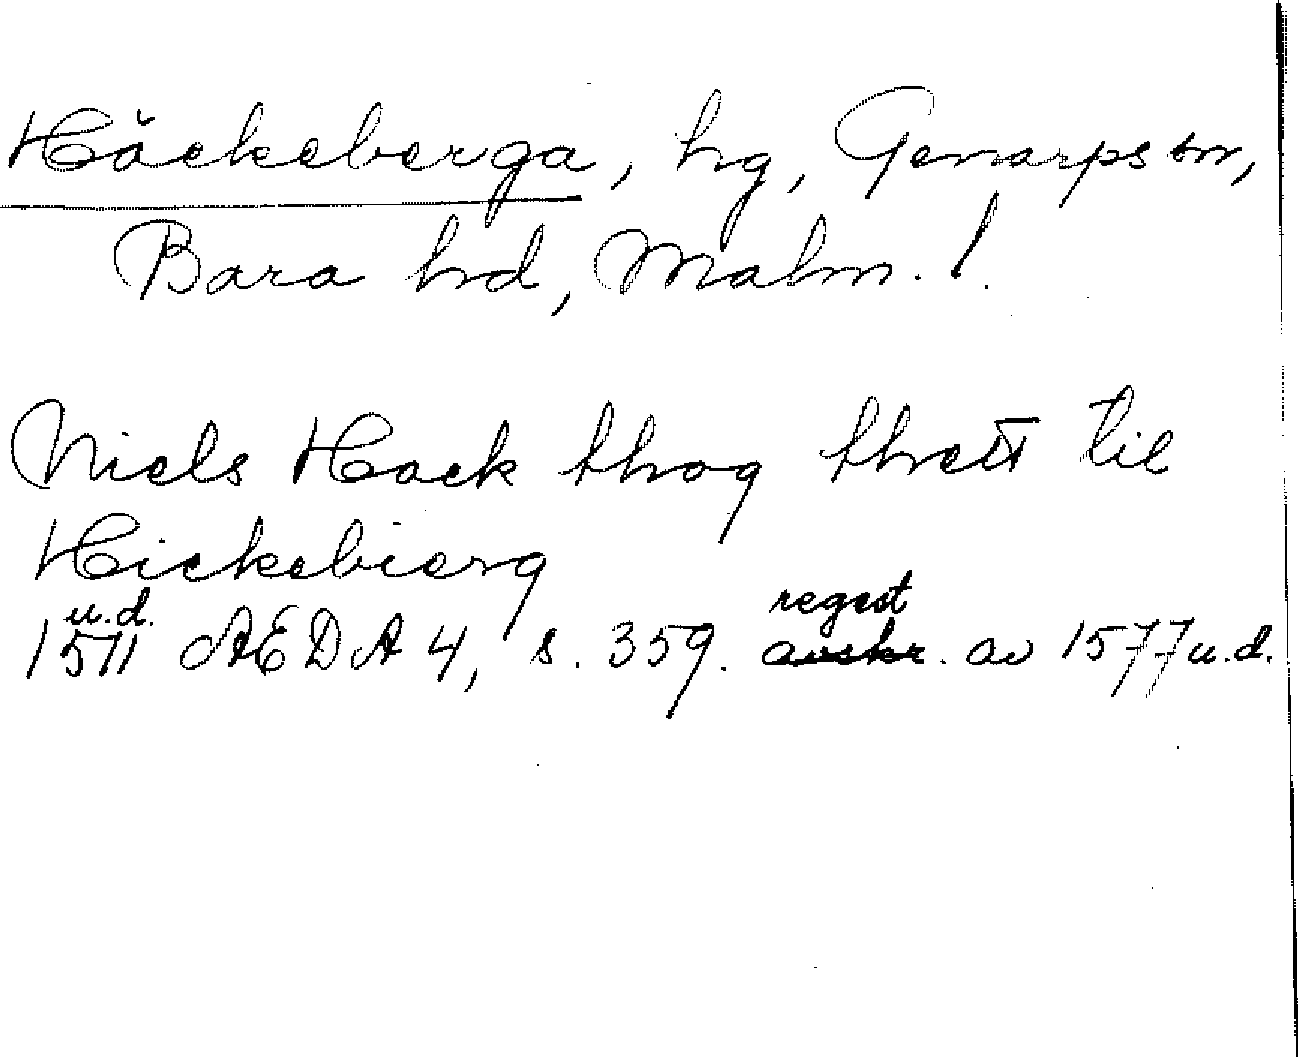 Häckeberga, hg, Genarps sn,
Bara hd, Malm. l.
Niels Hack thog thrett til
Hickebierg
u.d. regest
1511 AEDA 4, s. 359. avskr. av 1577 u.d.